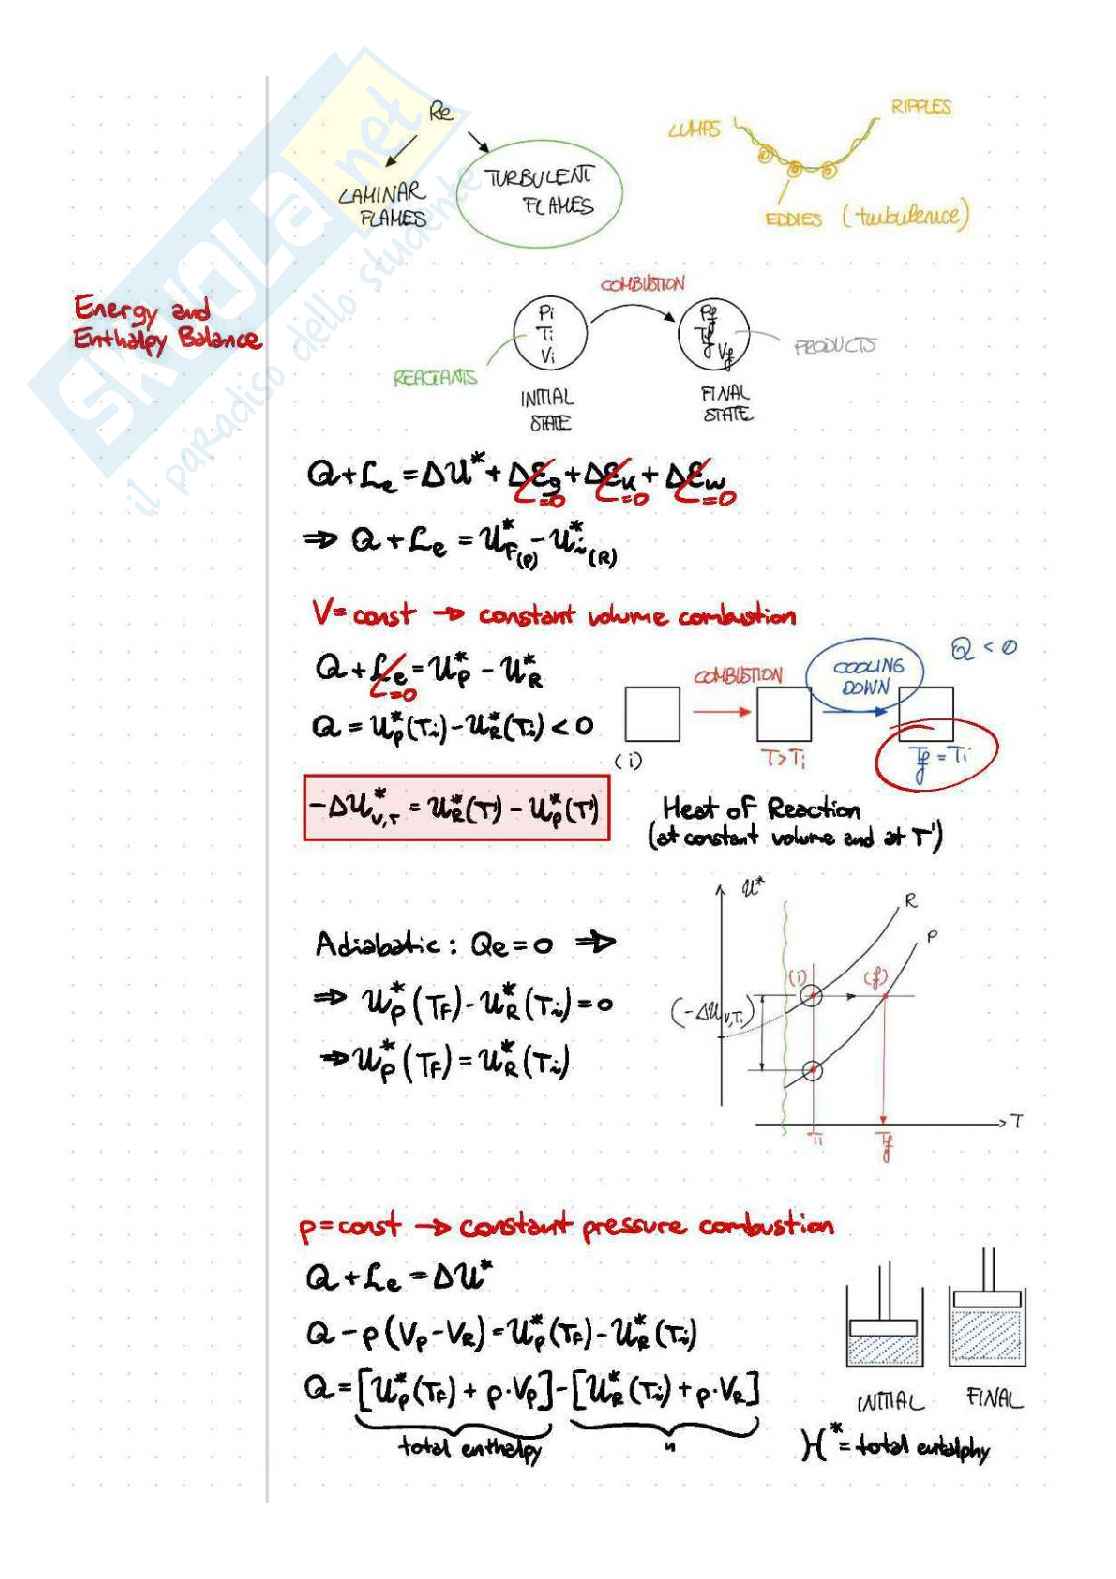 Re
LAMINAR FLAMES
TURBULENT FLAMES
LUMPS
RIPPLES
EDDIES (turbulence)
SKUOLA.net
il paradiso dello studente
Energy and
Enthalpy Balance
COMBUSTION
Pi
Ti
Vi
Pf
Tf
Vf
REACTANTS
PRODUCTS
INITIAL STATE
FINAL STATE
Q + Le = ΔU* + ΔEg + ΔEk + ΔEw
=0 =0 =0
⇒ Q + Le = U*F(P) - U*i(R)
V = const → constant volume combustion
Q + Le = U*P - U*R
=0
Q = U*P(Ti) - U*R(Ti) < 0
COMBUSTION
COOLING DOWN
Q < 0
(i)
T > Ti
Tf = Ti
-ΔU*V,T = U*R(T') - U*P(T')
Heat of Reaction
(at constant volume and at T')
U*
R
P
(i)
(f)
(-ΔUV,Ti)
T
Ti
Tf
Adiabatic: Qe = 0 ⇒
⇒ U*P(TF) - U*R(Ti) = 0
⇒ U*P(TF) = U*R(Ti)
p = const → constant pressure combustion
Q + Le = ΔU*
Q - p(VP - VR) = U*P(TF) - U*R(Ti)
Q = [U*P(TF) + p·VP] - [U*R(Ti) + p·VR]
total enthalpy
"
INITIAL
FINAL
H* = total entalphy